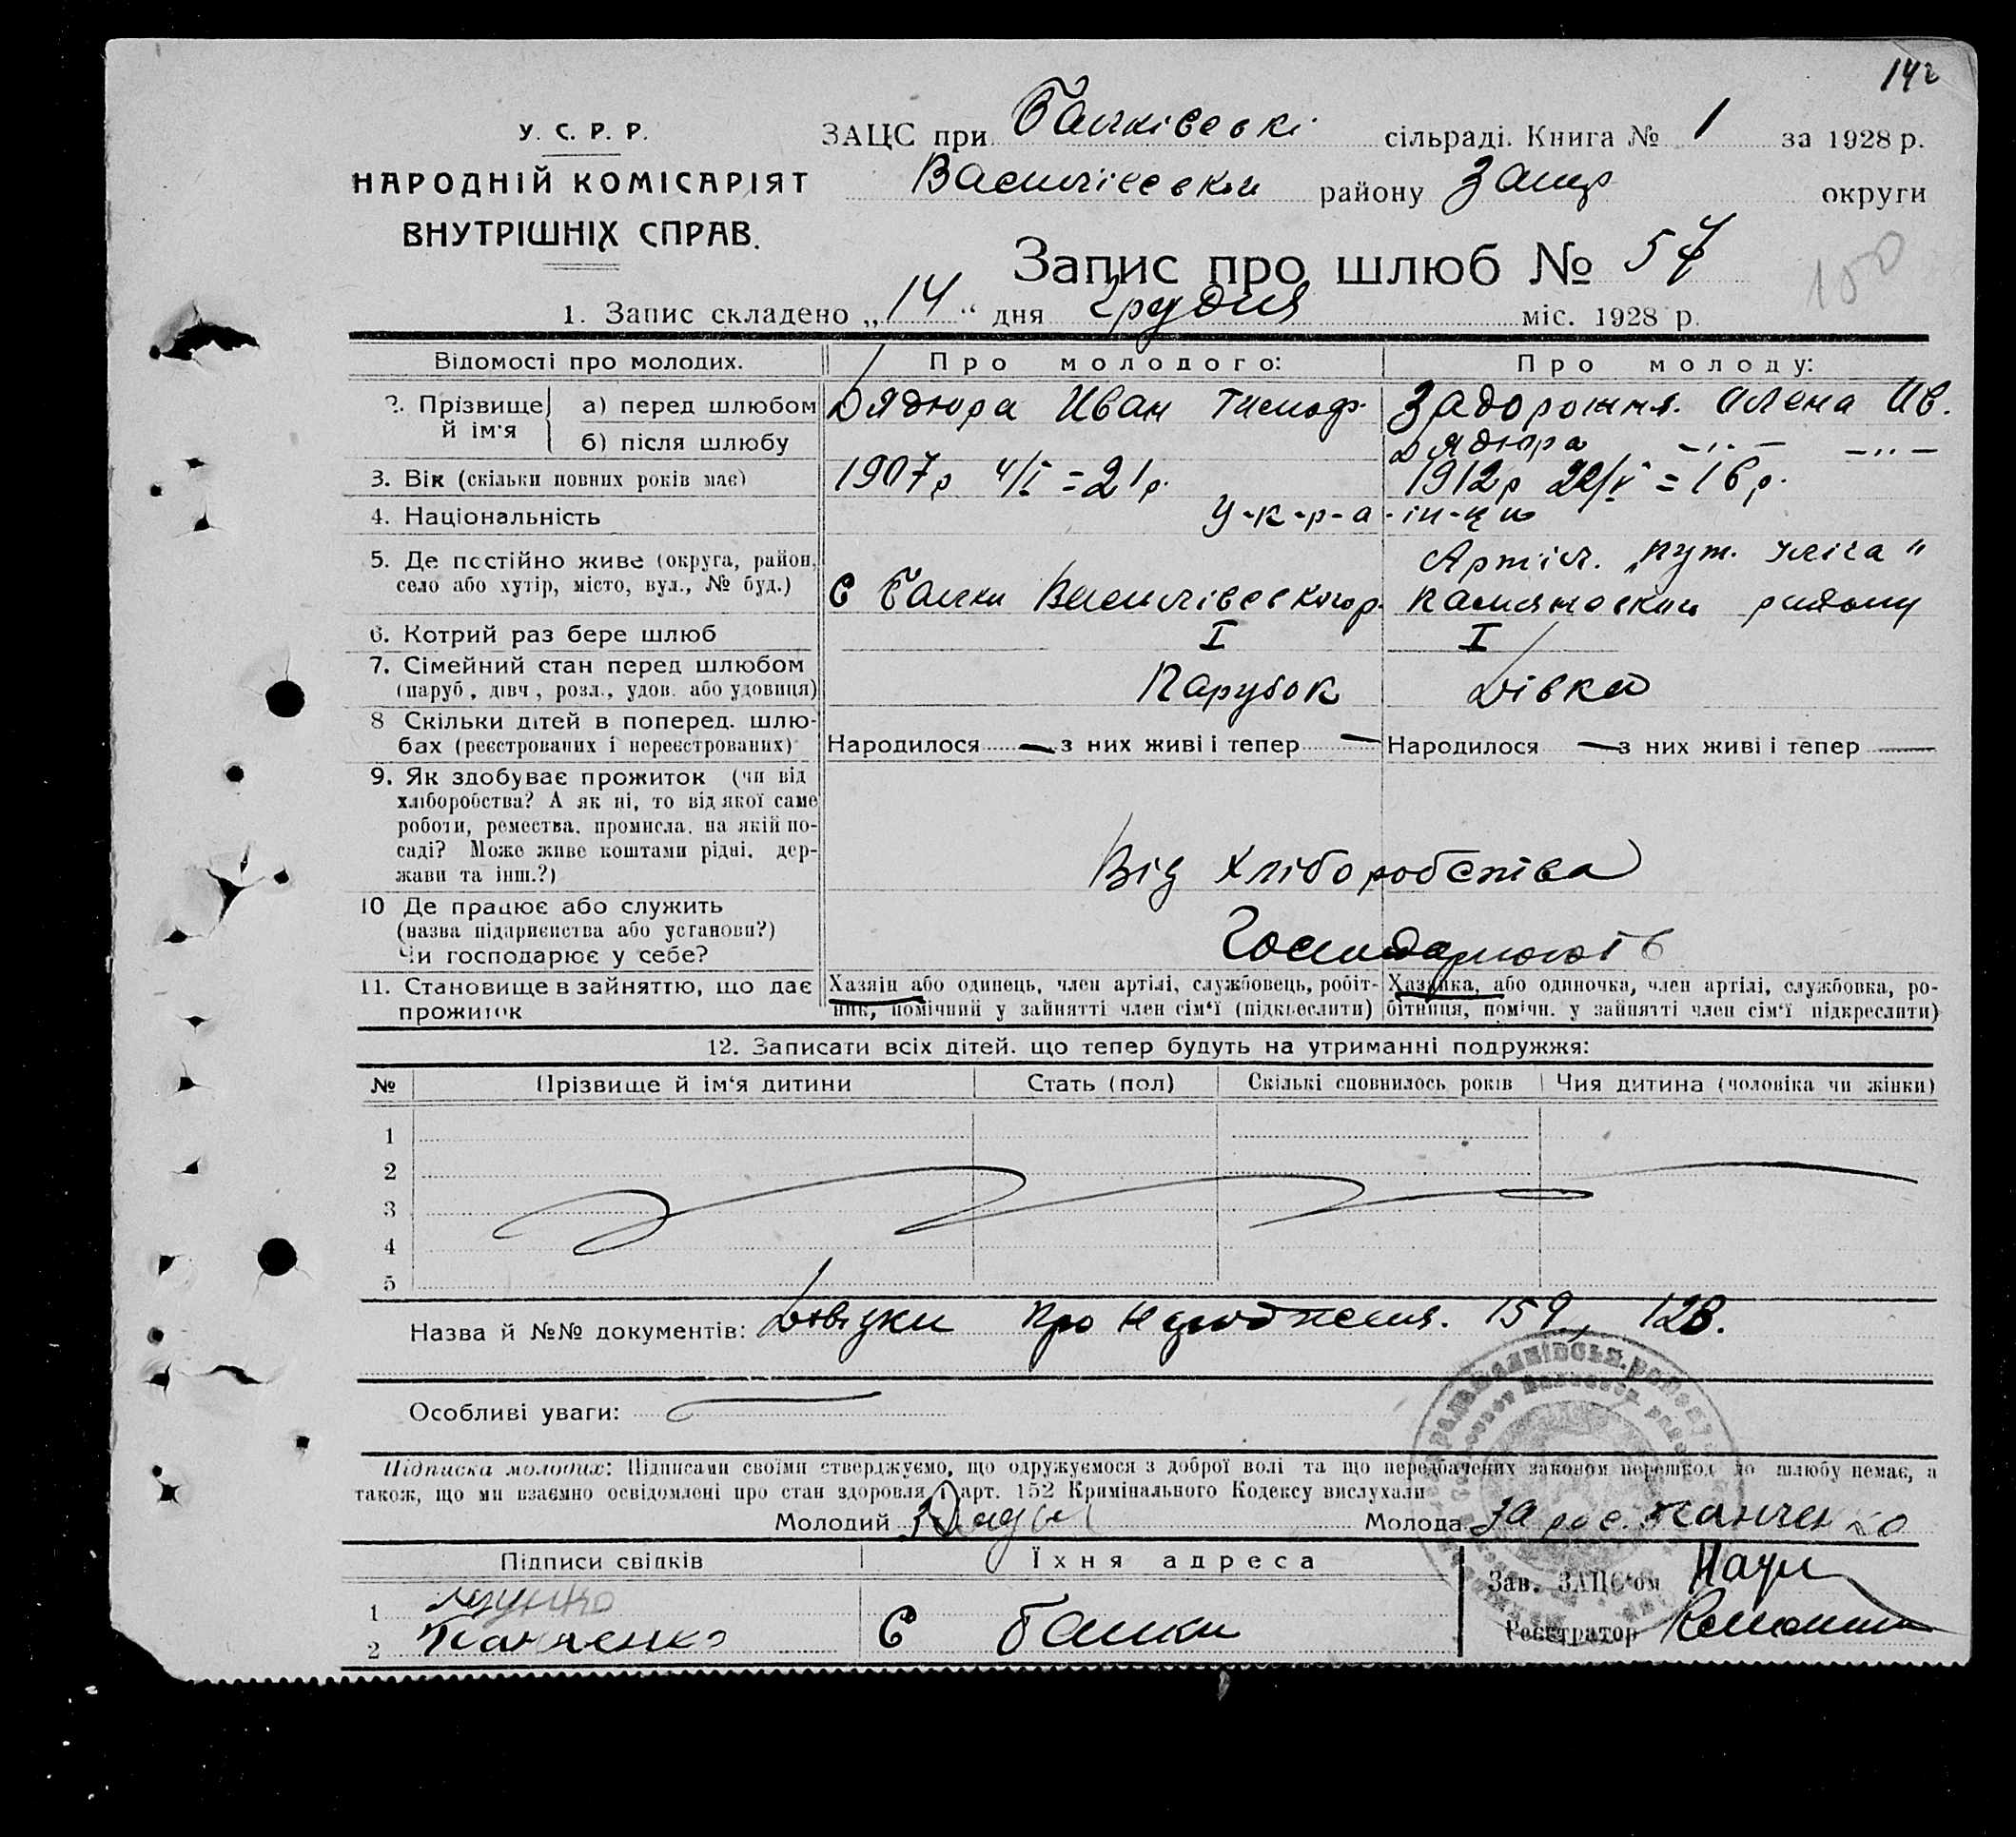 142
У. С. Р. Р.
НАРОДНІЙ КОМІСАРІЯТ
ВНУТРІШНІХ СПРАВ.
ЗАЦС при Балківські сільраді. Книга № 1 за 1928 р.
Василівськи району Запор округи
Запис про шлюб № 57
150
1. Запис складено „14“ дня Грудня міс. 1928 р.
Відомості про молодих. Про молодого: Про молоду:
2. Прізвище й ім'я а) перед шлюбом Дядюра Иван Тимоф. Задорожня Олена Ив.
б) після шлюбу Дядюра -··- -··-
3. Вік (скільки повних років має) 1907р 4/I = 21р. 1912р 22/V = 16р.
4. Національність У-к-р-а-ін-ци
5. Де постійно живе (округа, район, село або хутір, місто, вул., № буд.) С Балки Василівського р. Артіл. „Пут. Ілліча" район
6. Котрий раз бере шлюб I I
7. Сімейний стан перед шлюбом Парубок Дівка
(паруб., дівч., розл., удов. або удовиця)
8 Скільки дітей в поперед. шлю-
бах (реєстрованих і нереєстрованих) Народилося — з них живі і тепер — Народилося — з них живі і тепер —
9. Як здобуває прожиток (чи від
хліборобства? А як ні, то від якої саме
роботи, ремества, промисла, на якій по-
саді? Може живе коштами рідні, дер-
жави та інш.?) Від хліборобства
10 Де працює або служить
(назва підприємства або установи?)
Чи господарює у себе? Господарюють
11. Становище в зайняттю, що дає Хазяїн або одинець, член артілі, службовець, робіт- Хазяйка, або одиночка, член артілі, службовка, ро-
прожиток ник, помічний у зайнятті член сім'ї (підкреслити) бітниця, помічн. у зайнятті член сім'ї підкреслити)
12. Записати всіх дітей, що тепер будуть на утриманні подружжя:
№ Прізвище й ім'я дитини Стать (пол) Скількі сповнилось років Чия дитина (чоловіка чи жінки)
1
2
3
4
5
Назва й №№ документів: Довідки про народження. 159, 128.
Особливі уваги:
Підписка молодих: Підписами своїми стверджуємо, що одружуємося з доброї волі та що передбачених законом перешкод до шлюбу немає, а
також, що ми взаємно освідомлені про стан здоровля і арт. 152 Кримінального Кодексу вислухали
Молодий Молода за рос. Ткаченко
Підписи свідків Їхня адреса Зав. ЗАЦС'ом
1
2 Ткаченко С Балки Реєстратор